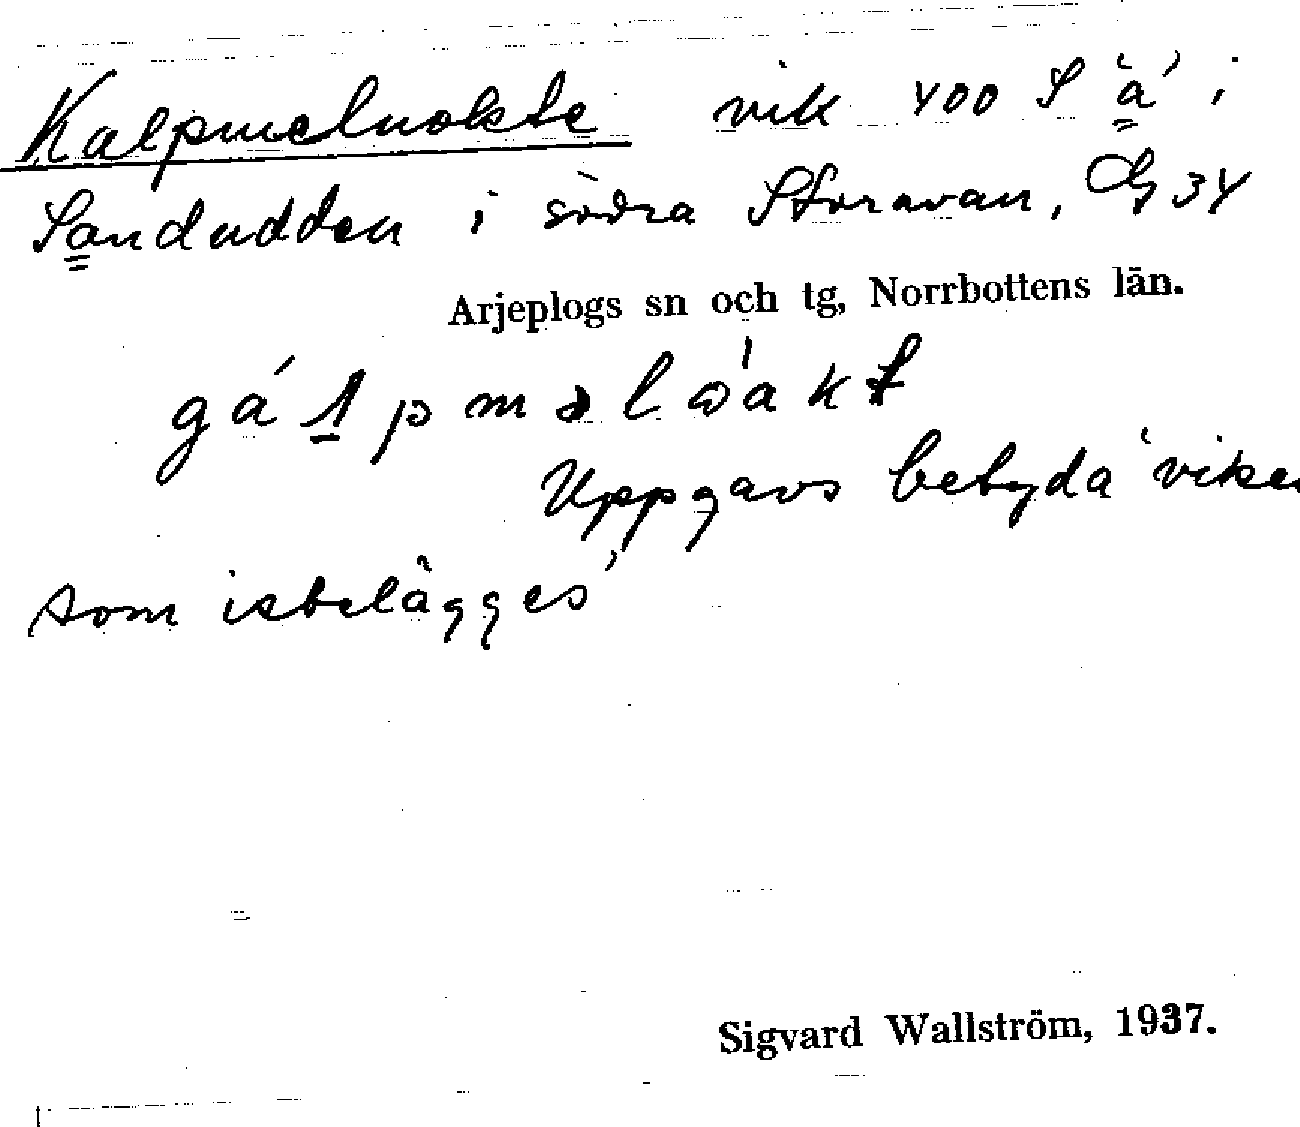 Kalpmeluokte vik 400 S 'a' i
Sandudden i södra Storavan, G 34
Arjeplogs sn och tg, Norrbottens län.
Uppgavs betyda 'viken
som isbelägges'
Sigvard Wallström, 1937.